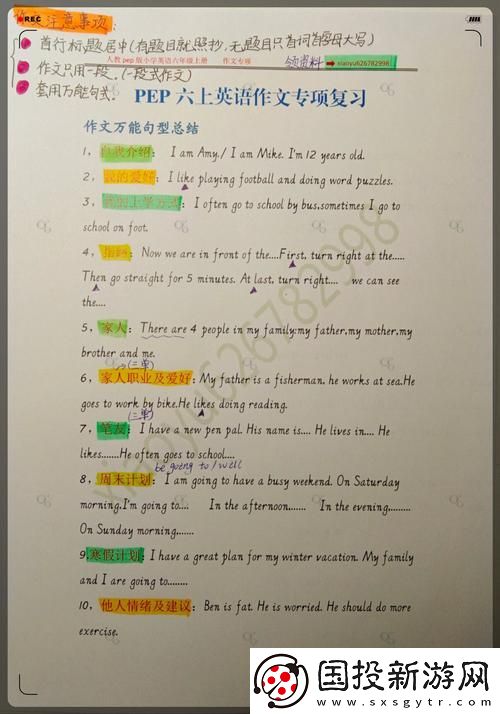 作文注意事项:
REC
① 首行标题居中(有题目就照抄,无题目只首词首字母大写)
人教pep版小学英语六年级上册 作文专项 领资料 ➡ xiaoyu626782998
② 作文只用一段.(一段式作文)
③ 套用万能句式.
PEP 六上英语作文专项复习
作文万能句型总结
1, 自我介绍: I am Amy./ I am Mike. I'm 12 years old.
2, 我的爱好: I like playing football and doing word puzzles.
3, 我的上学方式: I often go to school by bus,sometimes I go to
school on foot.
4, 指路: Now we are in front of the....First, turn right at the.....
Then go straight for 5 minutes. At last, turn right.... we can see
the....
5, 家人: There are 4 people in my family:my father,my mother,my
brother and me.
(三单)
6, 家人职业及爱好: My father is a fisherman. he works at sea.He
goes to work by bike.He likes doing reading.
(三单)
7, 笔友: I have a new pen pal. His name is.... He lives in.... He
likes.......He often goes to school....
be going to / will
8, 周末计划: I am going to have a busy weekend. On Saturday
morning,I'm going to.... In the afternoon....... In the evening........
On Sunday morning,......
9,寒假计划: I have a great plan for my winter vacation. My family
and I are going to........
10, 他人情绪及建议: Ben is fat. He is worried. He should do more
exercise.
xiaoyu626782998
国投新游网
www.sxsgytr.com